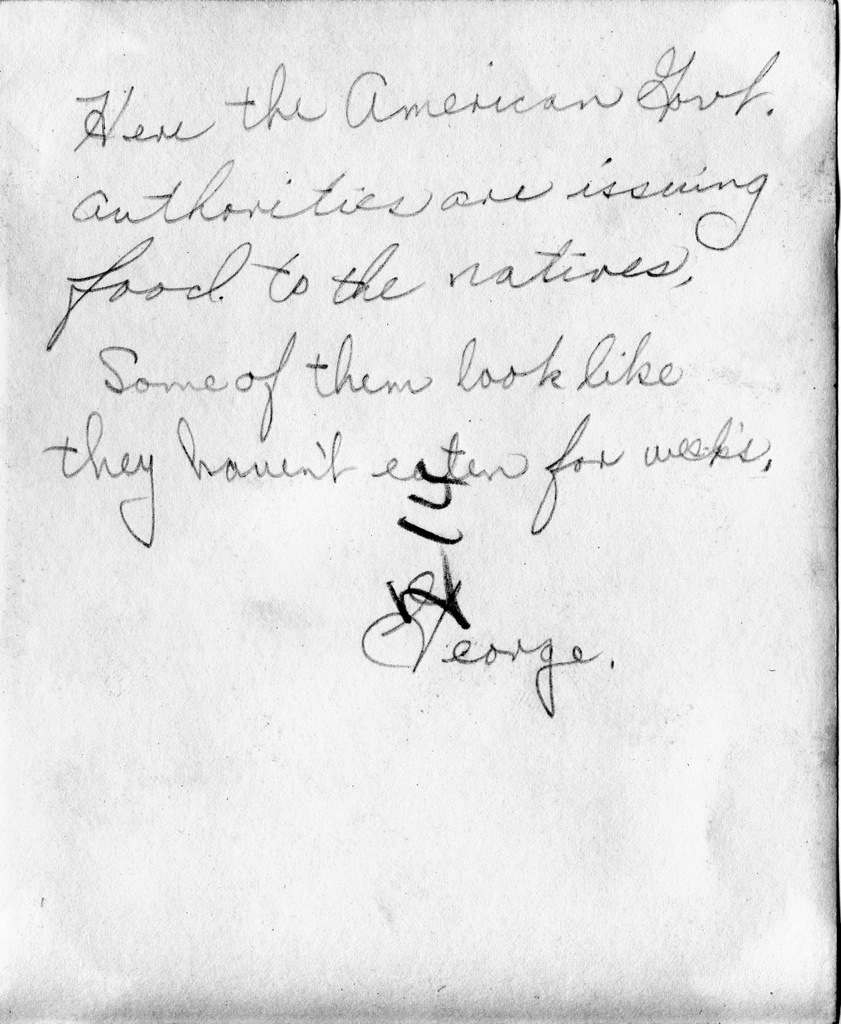 Here the American Govt.
authorities are issuing
food to the natives,
Some of them look like
they haven't eaten for weeks,
14
George.